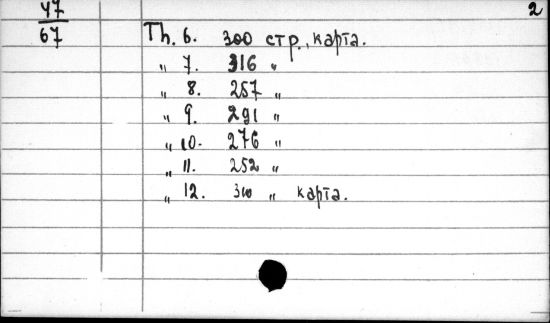 47
67
2
Th. 6. 300 стр., карта.
„ 7. 316 „
„ 8. 257 „
„ 9. 291 „
„ 10. 276 „
„ 11. 252 „
„ 12. 300 „ карта.